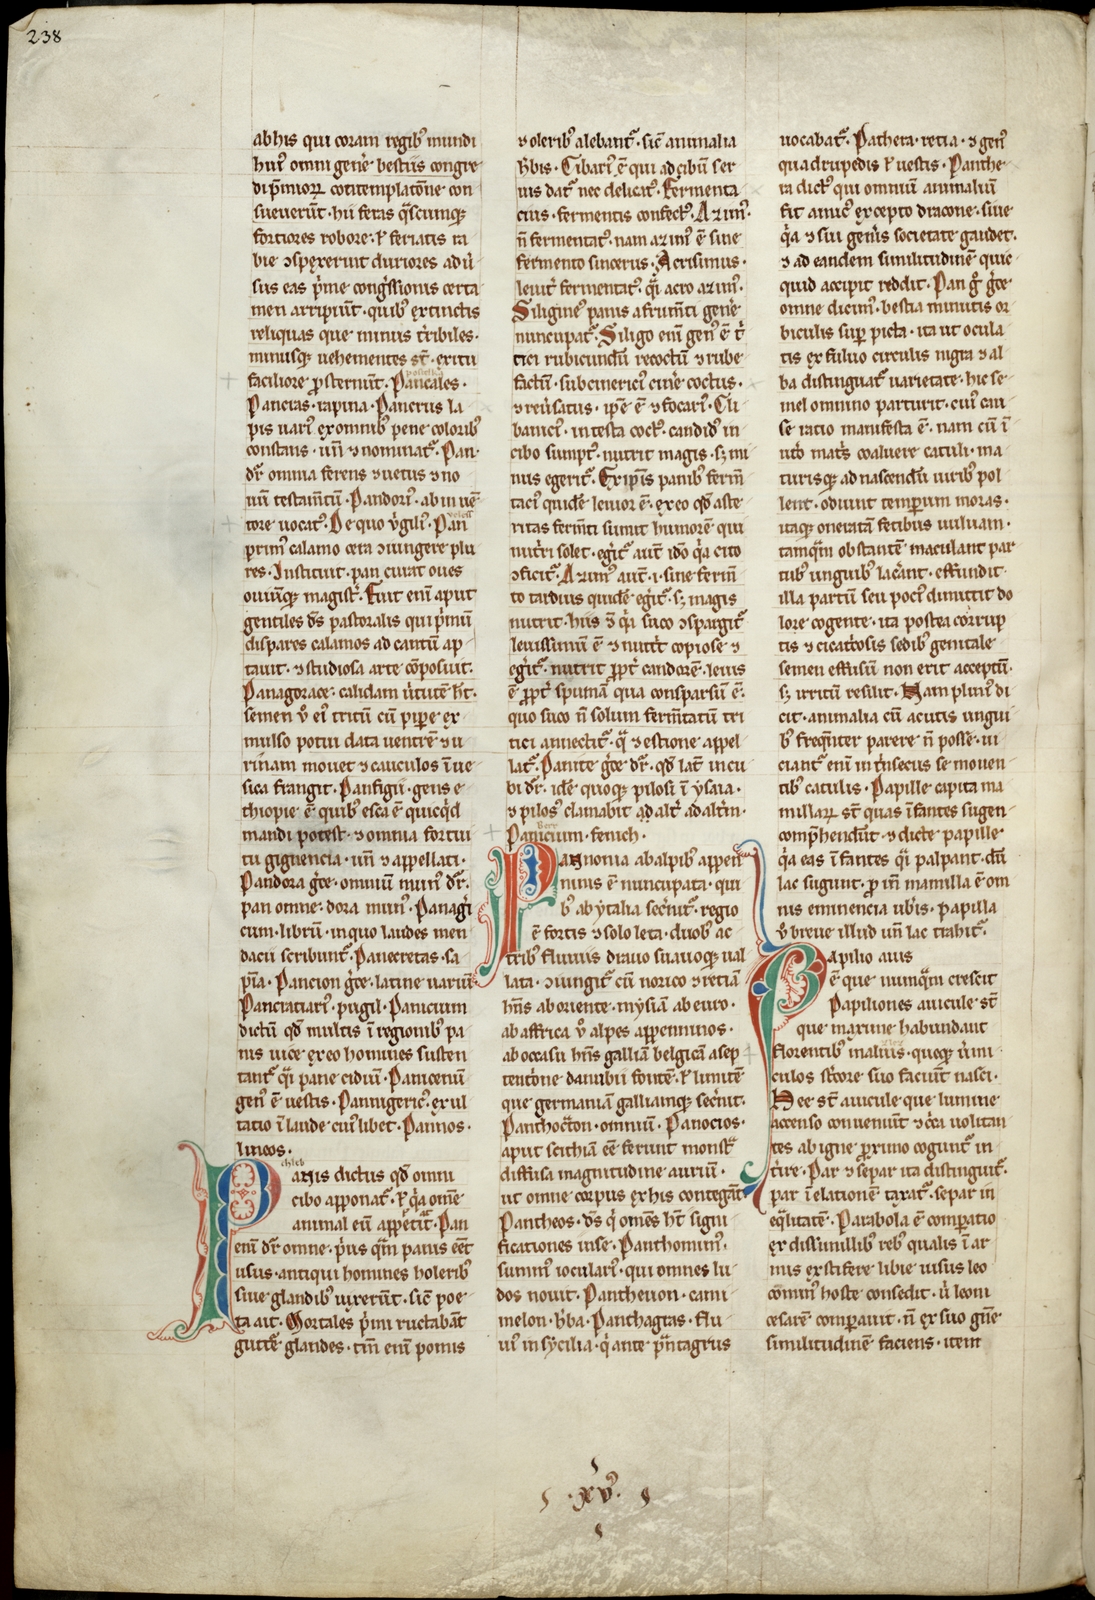 238
ab his qui coram regibꝰ mundi
huiꝰ omni genē bestiis congre
di p̄mioꝝ contemplatōne con
sueuerūt· hii feras q̄scumqꝫ
fortiores robore· ⁊ feriatis ra
bie ↄspexerunt duriores adū
sus eas p̄me congressionis certa
men arripiūt· quibꝰ extinctis
reliquas que minus tribiles·
minusqꝫ uehementes st̄· eritu
faciliore ꝓsternūt· Pancales·
Pancras· rapina· Pancrus la
pis uariꝰ ex omnibꝰ pene coloribꝰ
constans· uñ ⁊ nominat᷑· Pan·
dr̄ omnia ferens ⁊ uetus ⁊ no
uū testam̄tū· Pandoriꝰ· ab inuē
tore uocatꝰ· De quo v̓giliꝰ· Pan
primꝰ calamo cera ↄiungere plu
res· Instituit· pan curat oues
ouiūqꝫ magistr̄· Fuit eni aput
gentiles dꝰs pastoralis qui p̄mū
dispares calamos ad cantū ap
tauit· ⁊ studiosa arte cōposuit·
Panagorace· calidam v̓tutē ht̄·
semen v̓ eiꝰ tritū cū pipere ex
mulso potui data uentrē ⁊ u
rinam mouet ⁊ cauculos ī ue
sica frangit· Panfigii· gens e
thiopie ē quibꝰ esca ē quicq̄d
mandi potest· ⁊ omnia fortui
tu gignencia· uñ ⁊ appellati·
Pandora ḡce· omniū munꝰ dr̄·
pan omne· dora munꝰ· Panagi
cum· librū· in quo laudes men
dacii scribunt᷑· Panecretas· sa
pīa· Pancion ḡce· latine uariū
Panciatiariꝰ· pugil· Panicium
dictū qd̄ multis ī regionibꝰ pa
nis uice ex eo homines susten
tant᷑ q̄i pane cidiū· Panicenū
genꝰ ē uestis· Pannigericꝰ· exul
tatio ī laude cuiꝰ libet· Pannos·
lineos·
Panis dictus qd̄ omni
cibo apponat᷑· ⁊ q̄a omē
animal eū appetit᷑· Pan
eni dr̄ omne· p̄us q̄m panis eēt
usus· antiqui homines holeribꝰ
siue glandibꝰ uixerūt· sic̄ poe
ta ait· Mortales p̄mi ructabāt
guttē glandes· tm̄ eni pomis
⁊ oleribꝰ alebant᷑· sic̄ animalia
h̄bis· Cibariꝰ ē qui ad cibū ser
uis dat᷑ nec delicatꝰ· Fermenta
cius· fermentis confectꝰ· Azimꝰ·
ñ fermentatꝰ· nam azimꝰ ē sine
fermento sincerus· Acrisimus·
leuit᷑ fermentatꝰ· q̄i acro azimꝰ·
Siligineꝰ panis a frum̄ti genē
nuncupat᷑· Siligo eni genꝰ ē t̓
tici rubicundū recoctū ⁊ rube
factū· subcinericiꝰ cinē coctus·
⁊ reūsatus· ip̄e ē ⁊ focariꝰ· Cli
baniciꝰ· in testa coctꝰ· candidꝰ in
cibo sumptꝰ· nutrit magis· sꝫ mi
nus egerit᷑· Excip̄is panibꝰ ferm̄
taciꝰ quidē leuior ē· ex eo qd̄ aste
ritas ferm̄ti sumit humorē qui
nutri solet· eḡit᷑ aut̄ ido q̄a cito
ↄficit᷑· Azimꝰ aut̄ ·i· sine ferm̄
to tardius quidē eḡit᷑· sꝫ magis
nutrit· hiis ⁊ q̄a suco ↄspargit᷑
leuissimū ē ⁊ nutt᷑ copiose ⁊
eḡit᷑· nutrit ꝓpt̓ candorē· leuis
ē ꝓpt̓ spumā qua consparsū ē·
quo suco ñ solum ferm̄tatū tri
tici annectit᷑· q̄ ⁊ estione appel
lat᷑· Panite ḡce dr̄· qd̄ lat̄ incu
bi dr̄· idē quoqꝫ pilosi ī ysaia·
⁊ pilosꝰ clamabit ad alt̓ ad altm̄·
Panicium· fenich·
Pannonia ab alpibꝰ appen
ninis ē nuncupata· qui
bꝰ ab ytalia secnit᷑· regio
ē fortis ⁊ solo leta· duobꝰ ac
tribꝰ fluuiis drauo sauoqꝫ ual
lata· ↄiungit᷑ cū norico ⁊ retiā
hñs ab oriente· mysiā ab euro·
ab affrica v̓ alpes appenninos·
ab occasu hñs galliā belgicā a sep
tentōne danubii fontē· ⁊ limitē
que germaniā galliamqꝫ secnit·
Panthocton· omniū· Panocios·
aput scithiā eē ferunt monst᷑
diffusa magnitudine auriū·
ut omne corpus ex his contegāt
Pantheos· dꝰs q̄ omēs ht̄ signi
ficationes in se· Panthomimꝰ·
summꝰ ioculariꝰ· qui omnes lu
dos nouit· Pantheuon· cami
melon· h̄ba· Panthagias· flu
uiꝰ in sycilia· q̄ ante p̄ntagrus
uocabat᷑· Pathera· retia· ⁊ genꝰ
quadrupedis ⁊ uestis· Panthe
ra dictꝰ qui omniū animaliū
sit amicꝰ excepto dracone· siue
q̄a ⁊ sui geñis societate gaudet·
⁊ ad eandem similitudinē quic
quid accipit reddit· Pan g̓ ḡce
omne dicimꝰ· bestia minutis or
biculis sup̄ picta· ita ut ocula
tis ex fuluo circulis nigra ⁊ al
ba distinguat᷑ uarietate· hic se
mel omnino parturit· cuiꝰ cau
se ratio manifesta ē· nam cū ī
utō matris coaluere catuli· ma
turisqꝫ ad nascendū uiribꝰ pol
lent· odiunt temporum moras·
itaqꝫ oneratā fetibus uuluam·
tamq̄m obstantē maculant par
tubꝰ unguibꝰ lac̄ant· effundit·
illa partū seu pociꝰ dimittit do
lore cogente· ita postea corrup
tis ⁊ cicatcosis sedibꝰ genitale
semen effusū non erit acceptū·
sꝫ irritū resilit· Nam pliniꝰ di
cit· animalia cū acutis ungui
bꝰ freq̄nter parere ñ posse· ui
ciant᷑ eni int̓nsecus se mouen
tibꝰ catulis· Papille capita ma
millaꝝ st̄ quas īfantes sugen·
comp̄hendūt· ⁊ dicte papille·
q̄a eas īfantes q̄i palpant· dū
lac sugunt· ꝓ in̄ mamilla ē om
nis eminencia ubis· papilla
v̓ breue illud uñ lac trahit᷑·
Papilio auis
ē que numq̄m crescit
Papiliones auicule st̄
que maxime habundant
florentibꝰ maluis· quoqꝫ v̓mi
culos stcore suo faciūt nasci·
Hee st̄ auicule que lumine
accenso conueniūt ⁊ cc̄a uolitan
tes ab igne ꝓximo cogunt᷑ in
tire· Par ⁊ separ ita distinguit᷑·
par ī elationē taxat᷑· separ in
eq̄litatē· Parabola ē comparatio
ex dissimilibꝰ rebꝰ qualis ī ar
mis exstifere libie uisus leo
cōminꝰ hoste consedit· v̓ leoni
cesarē comparauit· ñ ex suo gn̄e
similitudinē faciens· item
·xv·